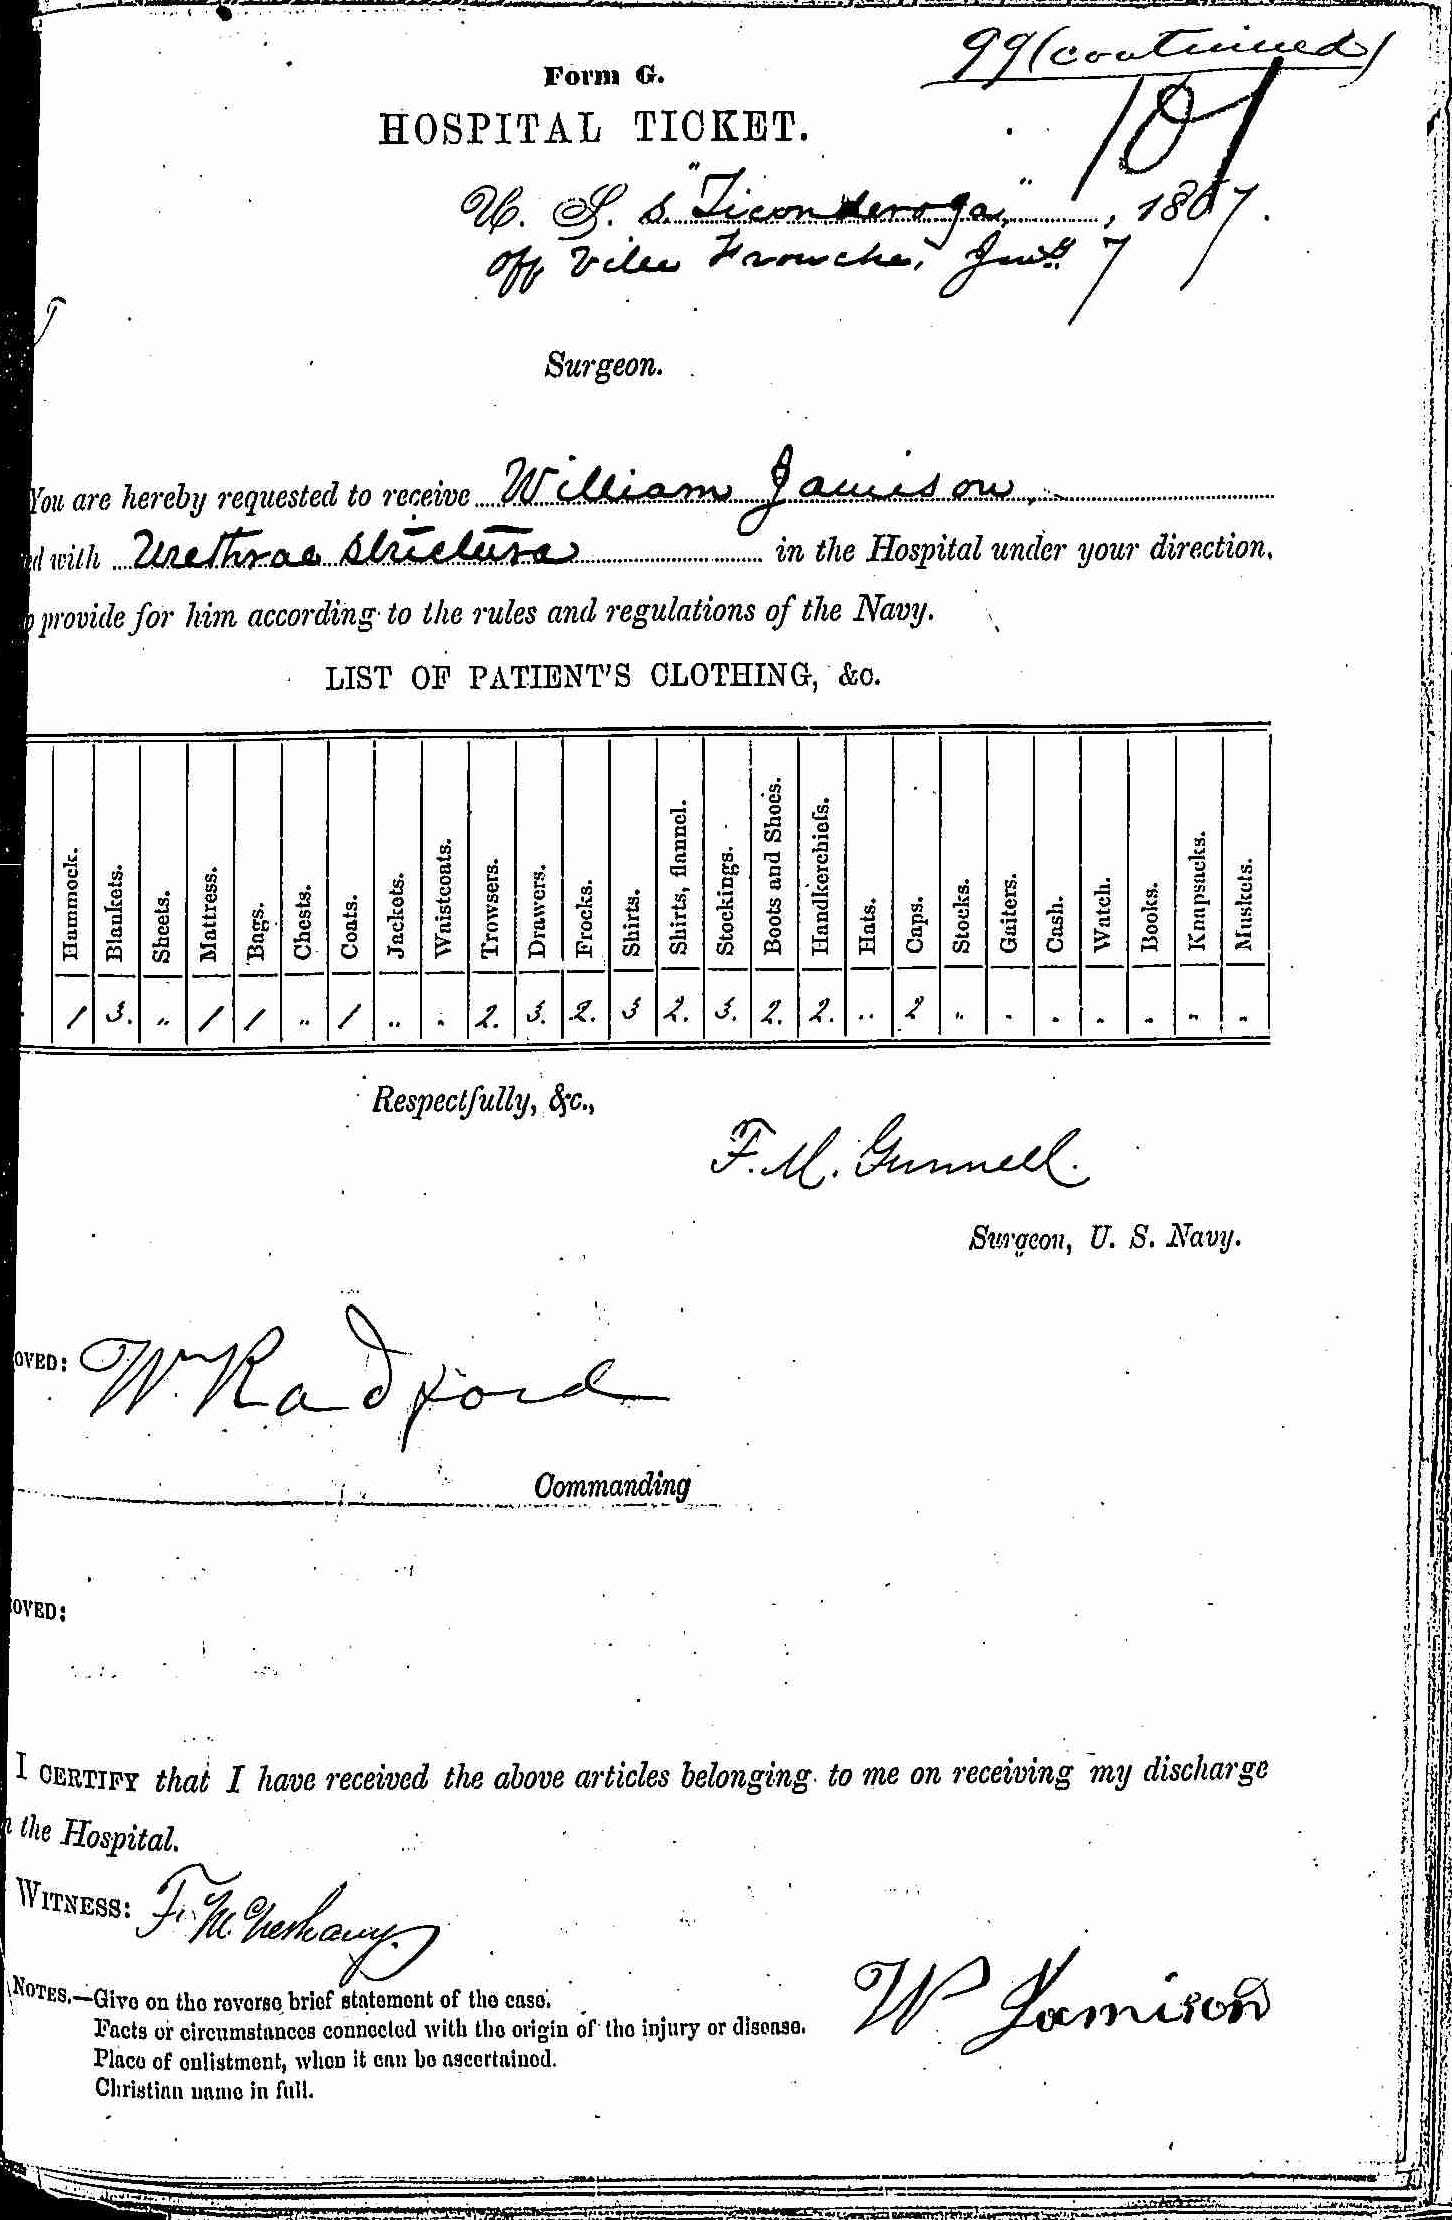 99 (continued)
Form G.
101
HOSPITAL TICKET.
U. S. S. "Ticonderoga," , 1867.
off Villa Francha, 7
Surgeon.
You are hereby requested to receive William Jamison,
ed with Urethrae Strictura in the Hospital under your direction,
o provide for him according to the rules and regulations of the Navy.
LIST OF PATIENT'S CLOTHING, &c.
Hammock. Blankets. Sheets. Mattress. Bags. Chests. Coats. Jackets. Waistcoats. Trowsers. Drawers. Frocks. Shirts. Shirts, flannel. Stockings. Boots and Shoes. Handkerchiefs. Hats. Caps. Stocks. Gaiters. Cash. Watch. Books. Knapsacks. Muskets.
1 3. " 1 1 " 1 " " 2. 3. 2. 3 2. 3. 2. 2. " 2 " " " " " " "
Respectfully, &c.,
F. M. Gunnell.
Surgeon, U. S. Navy.
OVED: Wm Radford
Commanding
OVED:
I CERTIFY that I have received the above articles belonging to me on receiving my discharge
the Hospital.
WITNESS: F. M.
NOTES.—Give on the reverse brief statement of the case.
Facts or circumstances connected with the origin of the injury or disease.
Place of enlistment, when it can be ascertained.
Christian name in full.
W Jamison